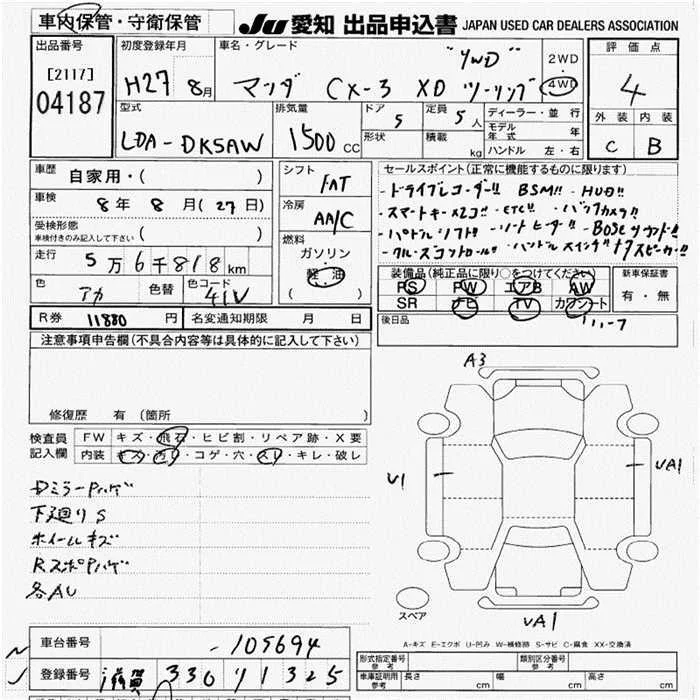 車内保管・守衛保管
JU 愛知 出品申込書 JAPAN USED CAR DEALERS ASSOCIATION
出品番号
[2117]
04187
初度登録年月
H27 8月
車名・グレード
"4WD"
マツダ CX-3 XD ツーリング
2WD
4WD
評価点
4
外装 内装
C B
型式
LDA-DK5AW
排気量
1500 CC
ドア 5
形状
定員 5人
積載 kg
ディーラー・並行
モデル年式 年
ハンドル 左・右
車歴
自家用・( )
車検
8年 8月(27日)
受検形態
車検付きのみ記入して下さい ( )
走行
5万6千818km
色
アカ
色替
色コード
41V
シフト
FAT
冷房
AA/C
燃料
ガソリン
軽油
( )
セールスポイント(正常に機能するものに限ります)
・ドライブレコーダー!! BSM!! ・HUD!!
・スマートキーx2コ!! ・ETC!! ・バックカメラ!!
・パドルシフト!! ・シートヒーター!! ・BOSEサウンド!!
・クルーズコントロール!!
装備品(純正品に限り○をつけてください)
PS PW エアB AW
SR ナビ TV カワシート
新車保証書
有・無
後日品
R券 11880 円
名変通知期限 月 日
注意事項申告欄(不具合内容等は具体的に記入して下さい)
修復歴 有 (箇所 )
検査員記入欄
FW キズ・飛石・ヒビ割・リペア跡・X要
内装 キズ・汚レ・コゲ・穴・スレ・キレ・破レ
DミラーPハゲ
下廻りS
ホイールキズ
RスポPハゲ
各AU
A3
U1
UA1
UA1
スペア
A-キズ E-エクボ U-凹み W-補修跡 S-サビ C-腐食 XX-交換済
車台番号
-105694
登録番号
滋賀 330 リ 1325
形式指定番号 参考
類別区分番号 参考
車庫証明用 参考
長さ cm 幅 cm 高さ cm